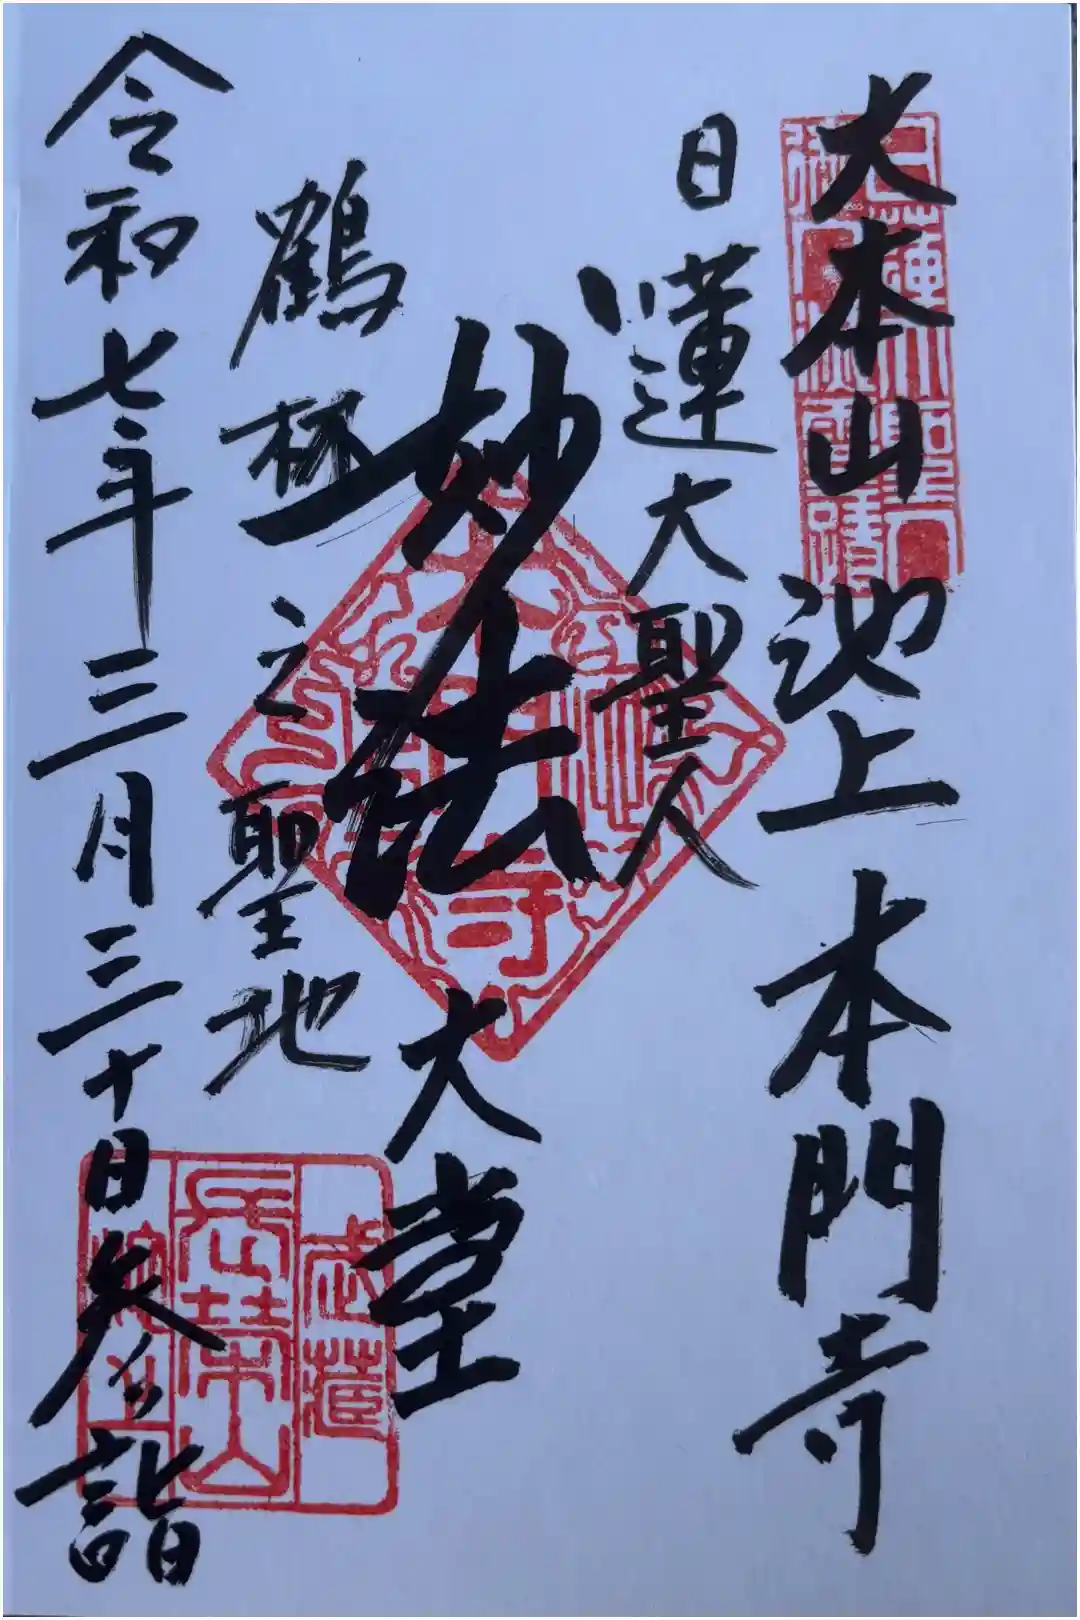 大本山 池上 本門寺
日蓮大聖人
妙法
大堂
鶴林之聖地
令和七年三月三十日参詣
武蔵
長栄山
池上